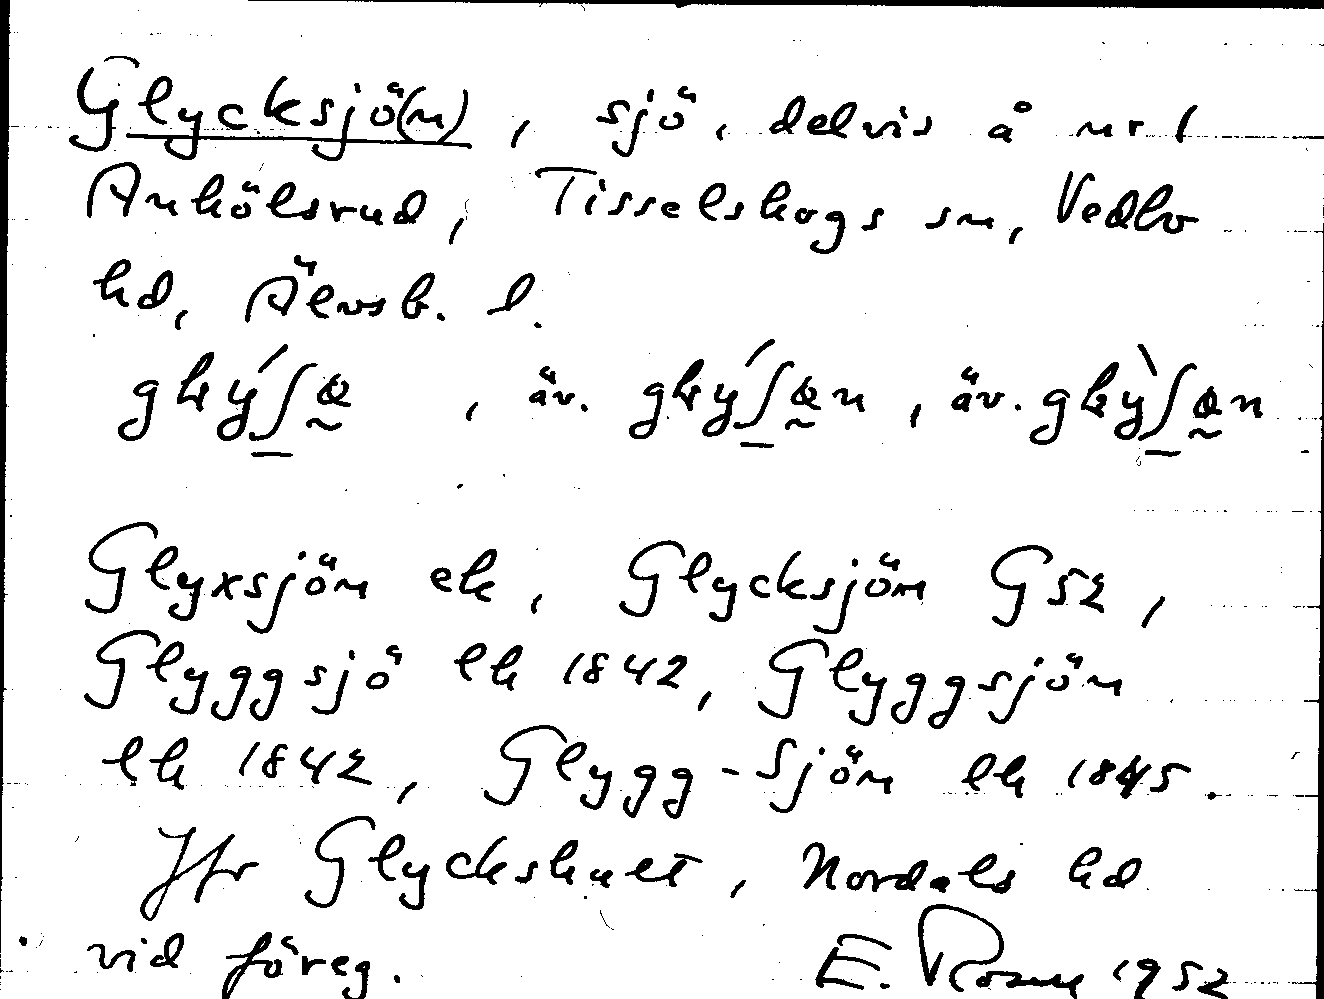 Glycksjö(n), sjö, delvis å nr 1
Anhölsrud, Tisselskogs sn, Vedbo
hd, Älvsb. l.
, äv. , äv.
Glyxsjön ek, Glycksjön GSK,
Glyggsjö lh 1842, Glyggsjön
lh 1842, Glygg-Sjön lh 1845.
Jfr Glyckshult, Nordals hd
vid föreg. E. 1952